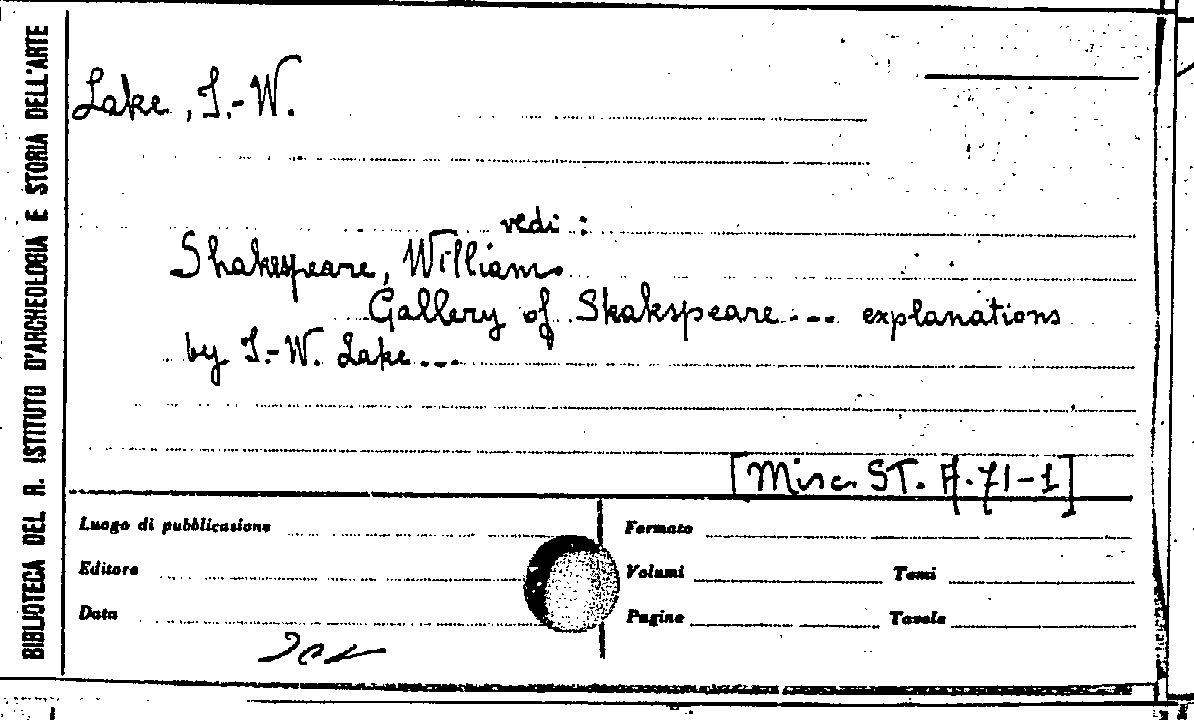 BIBLIOTECA DEL R. ISTITUTO D'ARCHEOLOGIA E STORIA DELL'ARTE
Lake, J.-W.
vedi :
Shakespeare, William.
Gallery of Shakspeare... explanations
by J.-W. Lake...
[Misc. ST. A.71-1]
Luogo di pubblicazione
Formato
Editore
Volumi
Tomi
Data
Pagine
Tavole